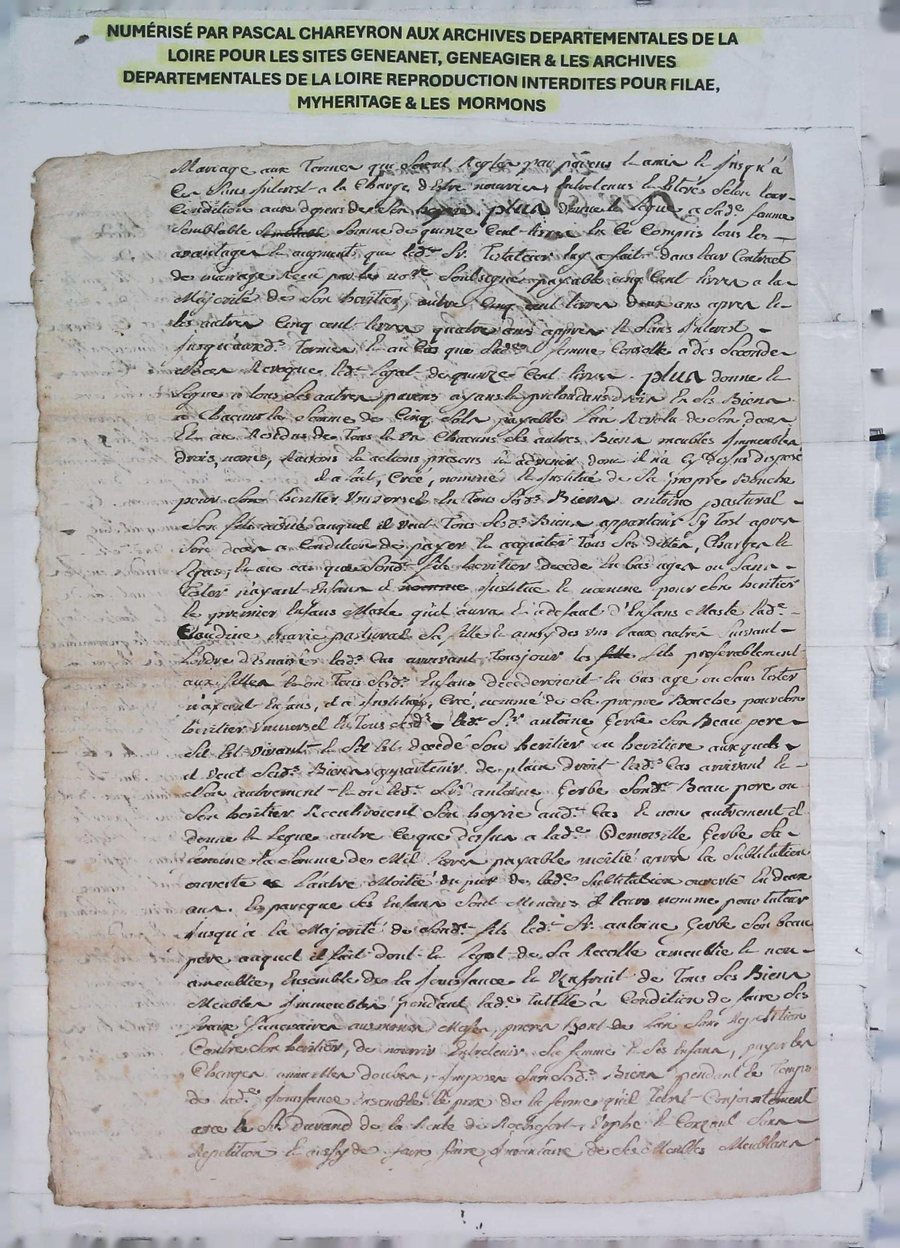 NUMÉRISÉ PAR PASCAL CHAREYRON AUX ARCHIVES DEPARTEMENTALES DE LA
LOIRE POUR LES SITES GENEANET, GENEAGIER & LES ARCHIVES
DEPARTEMENTALES DE LA LOIRE REPRODUCTION INTERDITES POUR FILAE,
MYHERITAGE & LES MORMONS
Mariage aux Termes qui seront Reglés par parens et amis et Jusqu'à
ce sans Interest a la Charge d'estre nourries, Entretenus et selon leur
Condition aux depens de son hoyrie plus donne et legue a sade femme
semblable somme de quinze Cent livres En ce Compris tous les
avantages et augments que ledt Sr Testateur luy a fait dans leur Contract
de mariage Receu par les nore soubsigné payable cinq Cent livres a la
Majorité de son heritier, autre Cinq cent livres deux ans apres et
les autres Cinq cent livres quatre ans apres et sans Interest
Jusqu'auxd. Termes Et au Cas que sade femme Convolle a des seconde
Noces Revoque led. legat de quinze Cent livres. plus donne et
legue a tous ses autres parens ayans et pretendans droits En ses Biens
a Chacun la somme de Cinq sols payable L'an Revolu de son deces
Et au Residus de Tous et un Chacuns ses autres Biens meubles Immeubles
droits, noms, Raisons et actions presens et advenir donc il n'a Cy dessus disposé
il a fait, Créé, nommé et Institué de sa propre Bouche
pour son heritier Universel En Tous sesd. Biens antoine pastural
son fils auquel il veut Tous sesd. Biens appartenir sy Tost apres
son deces a Condition de payer et acquiter Tous ses debtes, Charges et
legas, Et au cas que sond. fils heritier decede En bas ages ou sans
Tester n'ayant Enfans il Institue et nomme pour son heritier
le premier Enfans Masle qu'il aura Et a defaut d'Enfans Masle lad.
Claudine Marie pastural sa fille et ainsy des uns aux autres suivant
lordre d'Enaisé led. Cas arrivant Toujour les fils preferablement
aux filles Et ou Tous sesd. Enfans decederoient En bas age ou sans Tester
n'ayant Enfans, il a Institué, Créé, nommé de sa propre Bouche pour son
heritier universel En Tous sesd. led. Sr. antoine Gerbe son Beau pere
sil Est vivant et sil Est decedé son heritier ou heritiere auxquels
il veut sesd. Biens appartenir de plain droit led. Cas arrivant et
Non autrement Et ou led. Sr. antoine Gerbe sond. Beau pere ou
son heritier son hoyrie aud. Cas et non autrement il
donne et legue outre Ce que dessus a lade Demoiselle Gerbe sa
femme la somme de Mil livres payable moitié apres la substitution
ouverte et L'autre Moitié de lade substitution ouverte En deux
ans. Et parceque ses Enfans sont Mineurs Il leurs nomme pour tuteur
Jusqu'a la Majorité de sond. fils led. Sr. antoine Gerbe son beau
pere auquel il fait dont Et legat de sa Recolte ameublie et non
ameublie, Ensemble de la Jouissance et Uzufruit de Tous ses Biens
Meubles Immeubles pendant lade tutelle a Condition de faire ses
fraix funeraires aumones Messes, prieres Bout de L'an sans Repetition
Contre son heritier, de nourrir Entretenir sa femme et ses Enfans, payer les
Charges annuelles doubes, Imposes sur sesd. Biens pendant le Temps
de lade Jouissance Ensemble le prix de la ferme quil Tient Conjointement
avec le Sr. Durand de la Rente de Rochefort, et sans
Repetition et aussy de faire faire Inventaire de ses Meubles Meublans